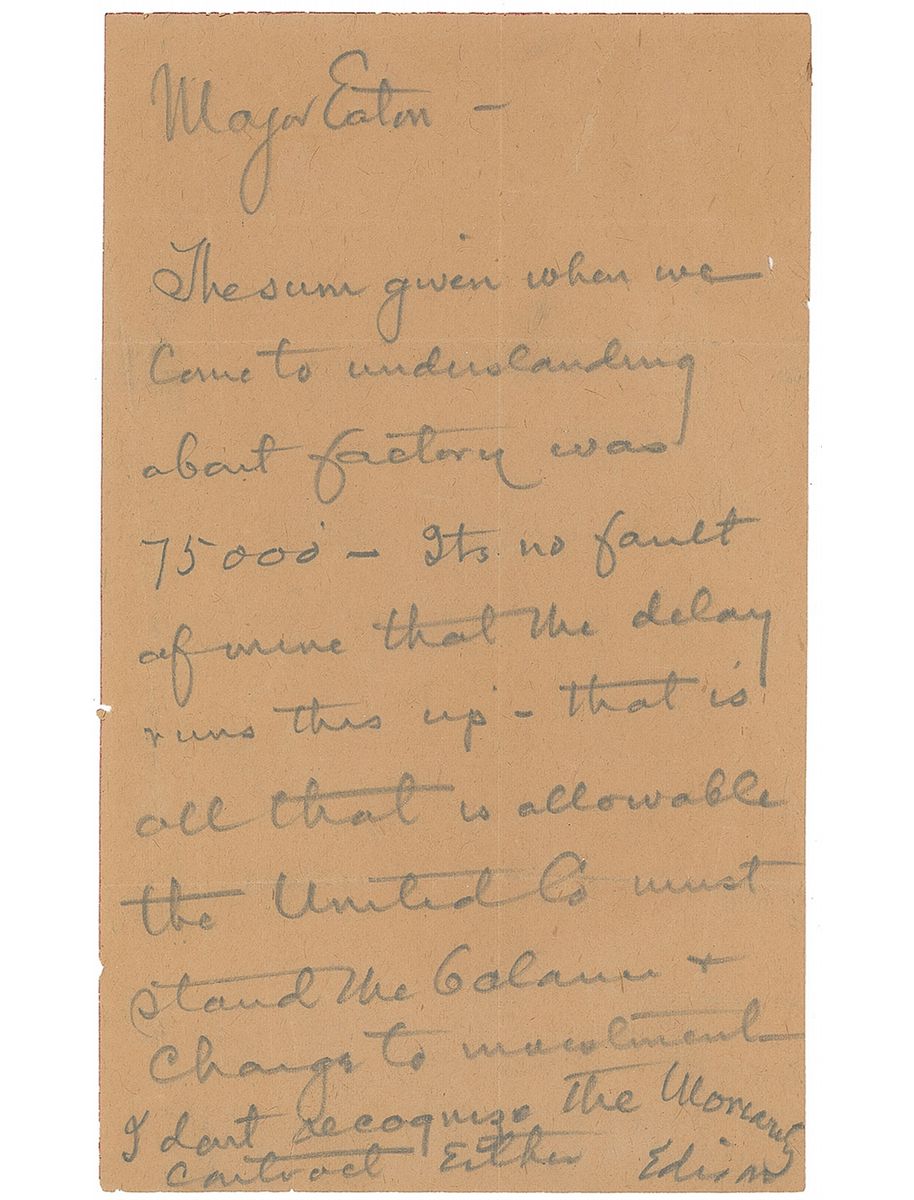 Major Eaton —
The sum given when we
Come to understanding
about factory was
75000 — Its no fault
of mine that the delay
runs this up — that is
all that is allowable
the United Co must
stand the balance +
Charge to investment
I dont recognize the Moriarty
contract Either Edison